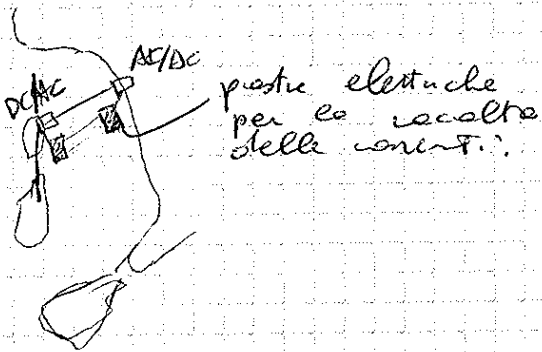 AC/DC
DC/AC
piastre elettriche
per la raccolta
delle correnti.